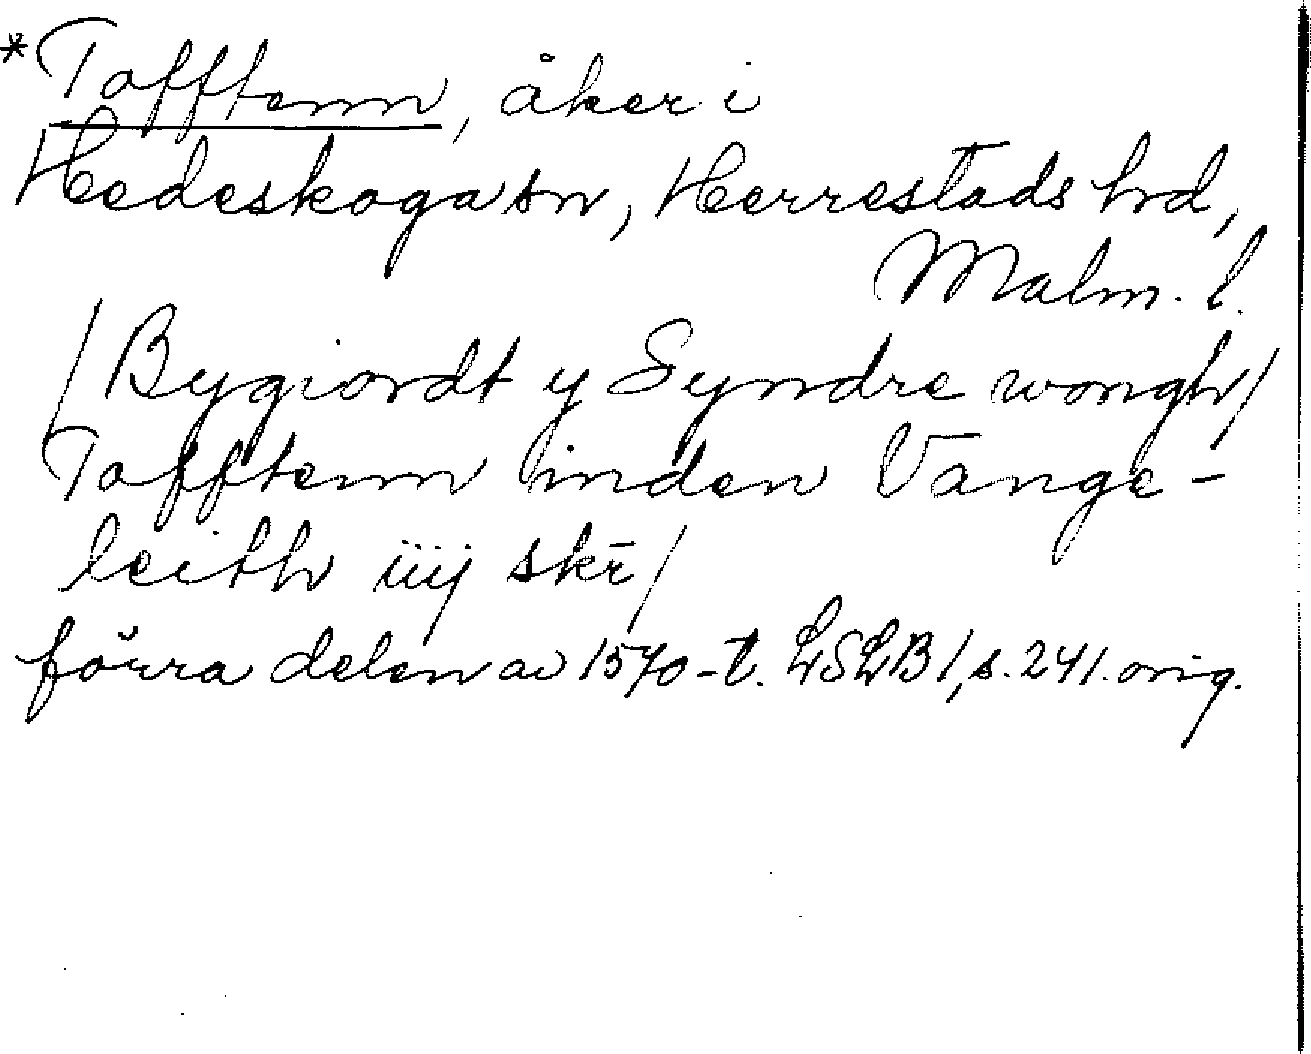 *Tafftenn, åker i
Hedeskoga sn, Herrestads hd,
Malm. l.
/Bygiordt y Syndre wongh/
Tafftenn inden Vange-
leith iiij skr̄/
förra delen av 1570-t. LSLB 1, s. 241. orig.